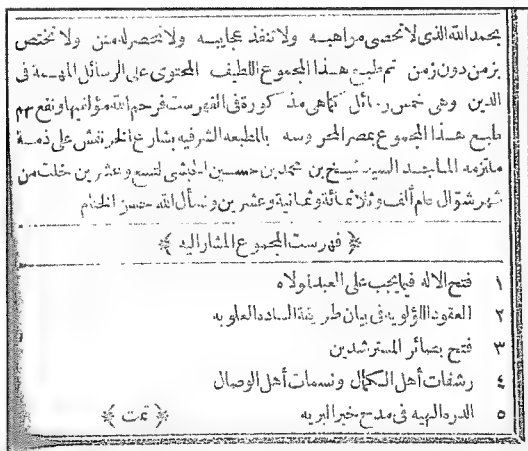 بحمد الله الذى لا تحصى مواهبه ولا تنفذ عجايبه ولا تنحصر له منن ولا تختص
بزمن دون زمن تم طبع هذا المجموع اللطيف المحتوى على الرسائل المهمة فى
الدين وهى خمس رسائل كما هى مذكورة فى الفهرست فرحم الله مؤلفيها ونفع بهم
طبع هذا المجموع بمصر المحروسه بالمطبعه الشرفيه بشارع الخرنفش على ذمة
ملتزمه الماجد السيد شيخ بن محمد بن حسين الحبشى لتسع وعشرين خلت من
شهر شوال عام ألف وثلاثمائة وثمانية وعشرين ونسأل الله حسن الختام
﴿ فهرست المجموع المشار اليه ﴾
١ فتح الاله فيما يجب على العبد لمولاه
٢ العقود اللؤلويه فى بيان طريقة الساده العلويه
٣ فتح بصائر المسترشدين
٤ رشفات أهل الكمال ونسمات أهل الوصال
٥ الدره البهيه فى مدح خير البريه ﴿ تمت ﴾